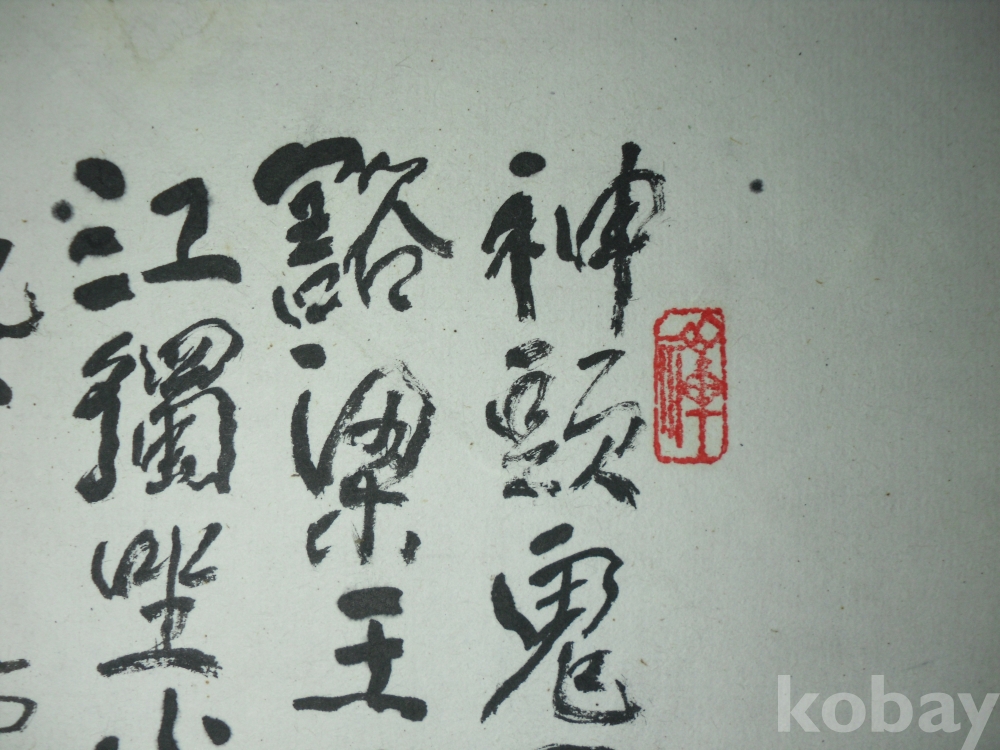 神頭鬼
豁梁王
江獨坐
kobay